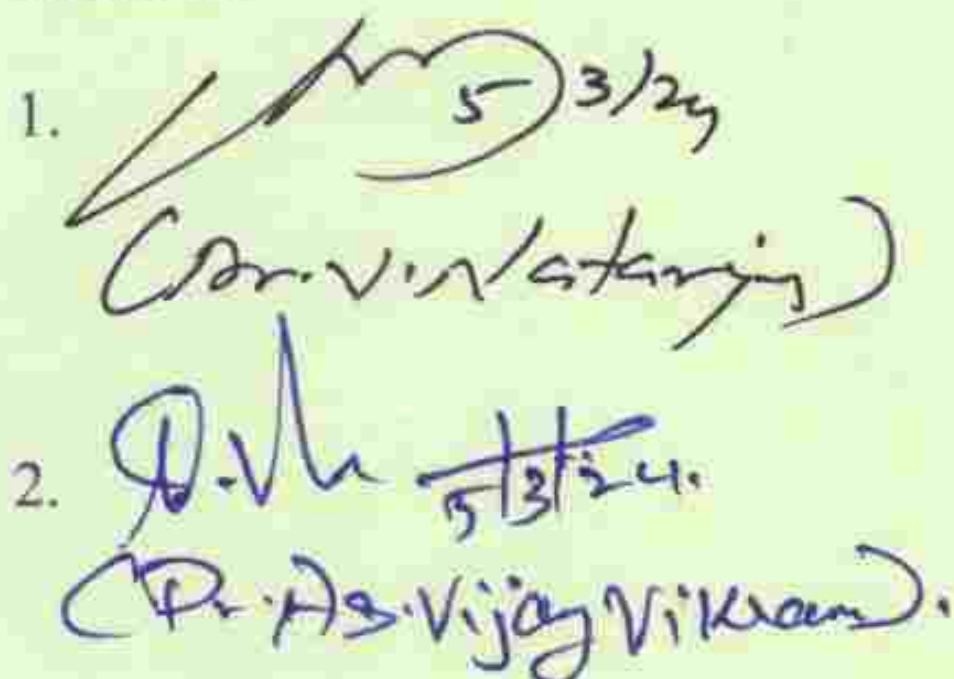 1. 5/3/24
(Dr. V. Natarajan)
2. 5/3/24.
(Dr. AS. Vijay Vikram).